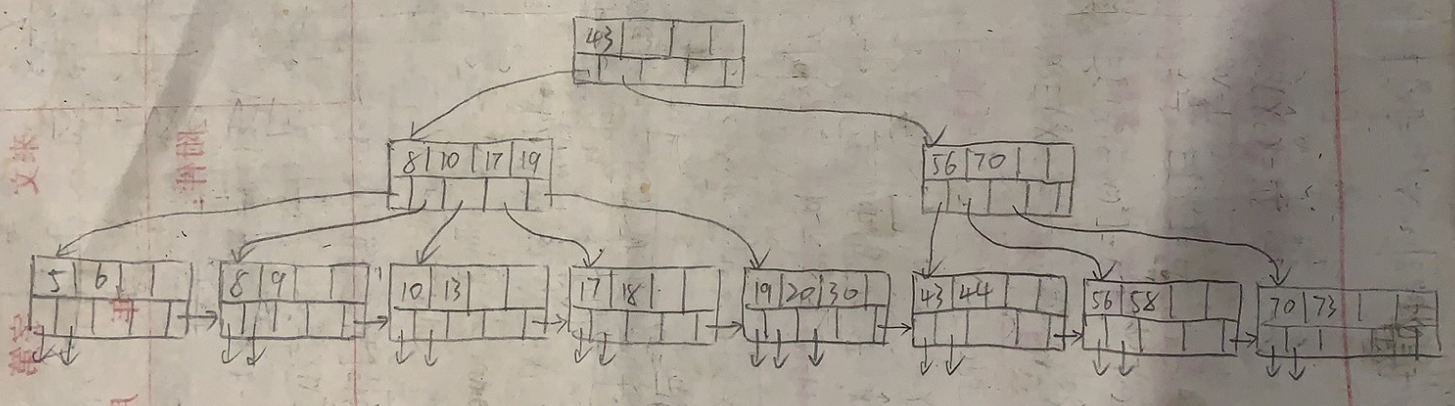 43
8 10 17 19
56 70
5 6
8 9
10 13
17 18
19 20 30
43 44
56 58
70 73